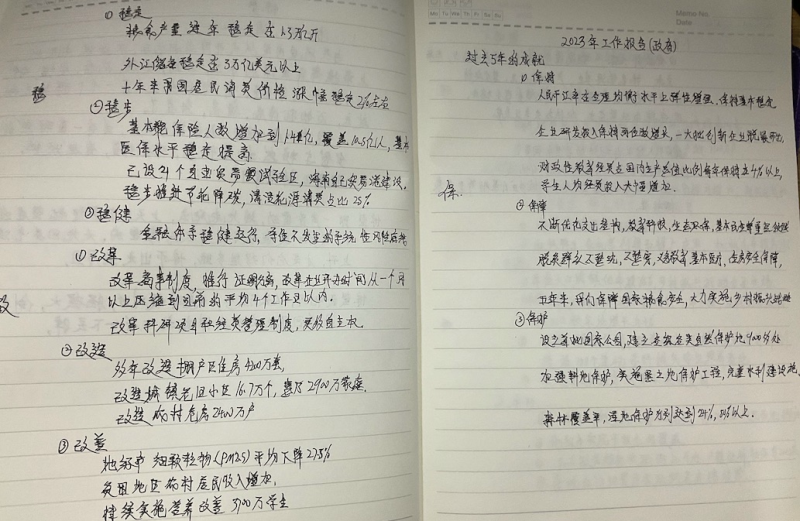 稳
① 稳定
粮食产量连年稳定在1.3万亿斤
外汇储备稳定在3万亿美元以上
十年来我国居民消费价格涨幅稳定2%左右
② 稳步
基本养老保险人数增加到1.4亿,覆盖10.5亿人,基本
医保水平稳定提高
已设21个自由贸易试验区,海南自己贸易港建设。
稳步推进节能降碳,清洁能源消费占比25%
③ 稳健
金融体系稳健运行,守住不发生系统性风险底线
改
① 改革
改革商事制度,推行证照分离,改革企业开办时间从一个月
以上压缩到目前的平均4个工作日以内。
改革科研项目和经费管理制度,
② 改造
多年改造棚户区住房4200万套,
改造城镇老旧小区16.7万个,惠及2900万家庭
改造农村危房2400万户
③ 改善
地级市细颗粒物(PM2.5)平均下降27.5%
贫困地区农村居民收入增加,
持续实施营养改善3700万学生
Mo Tu We Th Fr Sa Su
Memo No.
Date
2023年工作报告(政府)
过去5年的成就
保
① 保持
人民币汇率在合理均衡水平上弹性增强、保持基本稳定
企业研发投入保持两位数增长,一大批创新企业脱颖而出
财政性教育经费占国内生产总值比例每年保持在4%以上,
学生人均经费投入大幅增加.
② 保障
不断优化支出结构,教育科技,生态环保,基本民生等重点
脱贫群众不愁吃,不愁穿,义务教育基本医疗,住房安全保障,
五年来,国家粮食安全,大力实施乡村振兴战略
③ 保护
设立首批国家公园,建立各级各类自然保护地9000多处
加强耕地保护,实施黑土地保护工程,完善水利建设
森林覆盖率,湿地保护分别达到24%,50%以上.